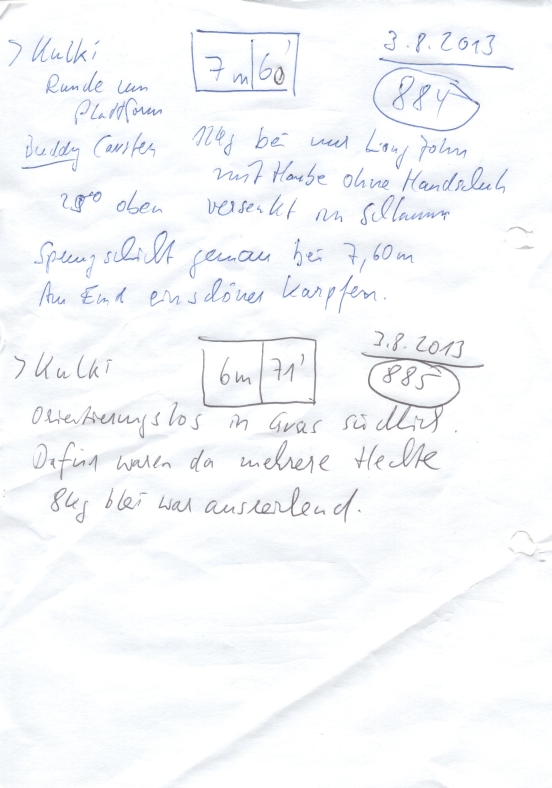 > Kulki
7m | 60'
3.8.2013
884
Runde um
Plattform
Buddy Carsten
12kg bei nur Long John
mit Haube ohne Handschuh
25°° oben
versenkt im Schlamm
Sprungschicht genau bei 7,60m
Am End ein schöner Karpfen.
> Kulki
6m | 71'
3.8.2013
885
Orientierungslos in Gras südlich.
Dafür waren da mehrere Hechte
8kg blei war ausreichend.